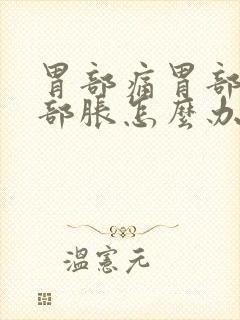 胃部痛胃部
部脹怎麼办
溫憲元